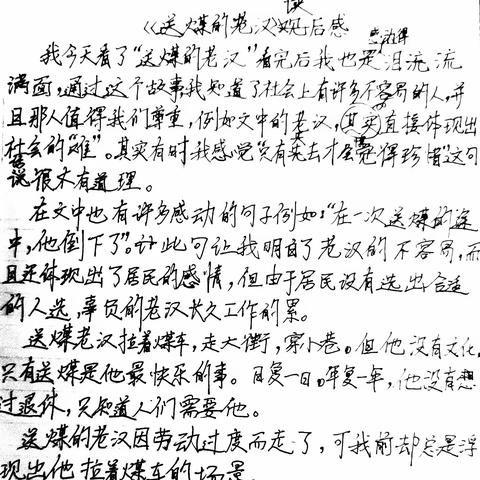 读
《送煤的老汉》观后感
我今天看了"送煤的老汉"看完后我也是感动得泪流
满面,通过这个故事我知道了社会上有许多不容易的人,并
且那人值得我们尊重,例如文中的老汉,其实直接体现出
社会的"难"。其实有时我感觉"只有失去才会觉得珍惜"这句
话很有道理。
在文中也有许多感动的句子例如:"在一次送煤的途
中,他倒下了"。此句让我明白了老汉的不容易,而
且还体现出了居民的感情,但由于居民没有选出合适
的人选,辜负的老汉长久工作的累。
送煤老汉拉着煤车,走大街,穿小巷。但他没有文化,
只有送煤是他最快乐的事。日复一日。年复一年,他没有想
过退休,只知道人们需要他。
送煤的老汉因劳动过度而走了,可我前却总是浮
现出他拉着煤车的场景